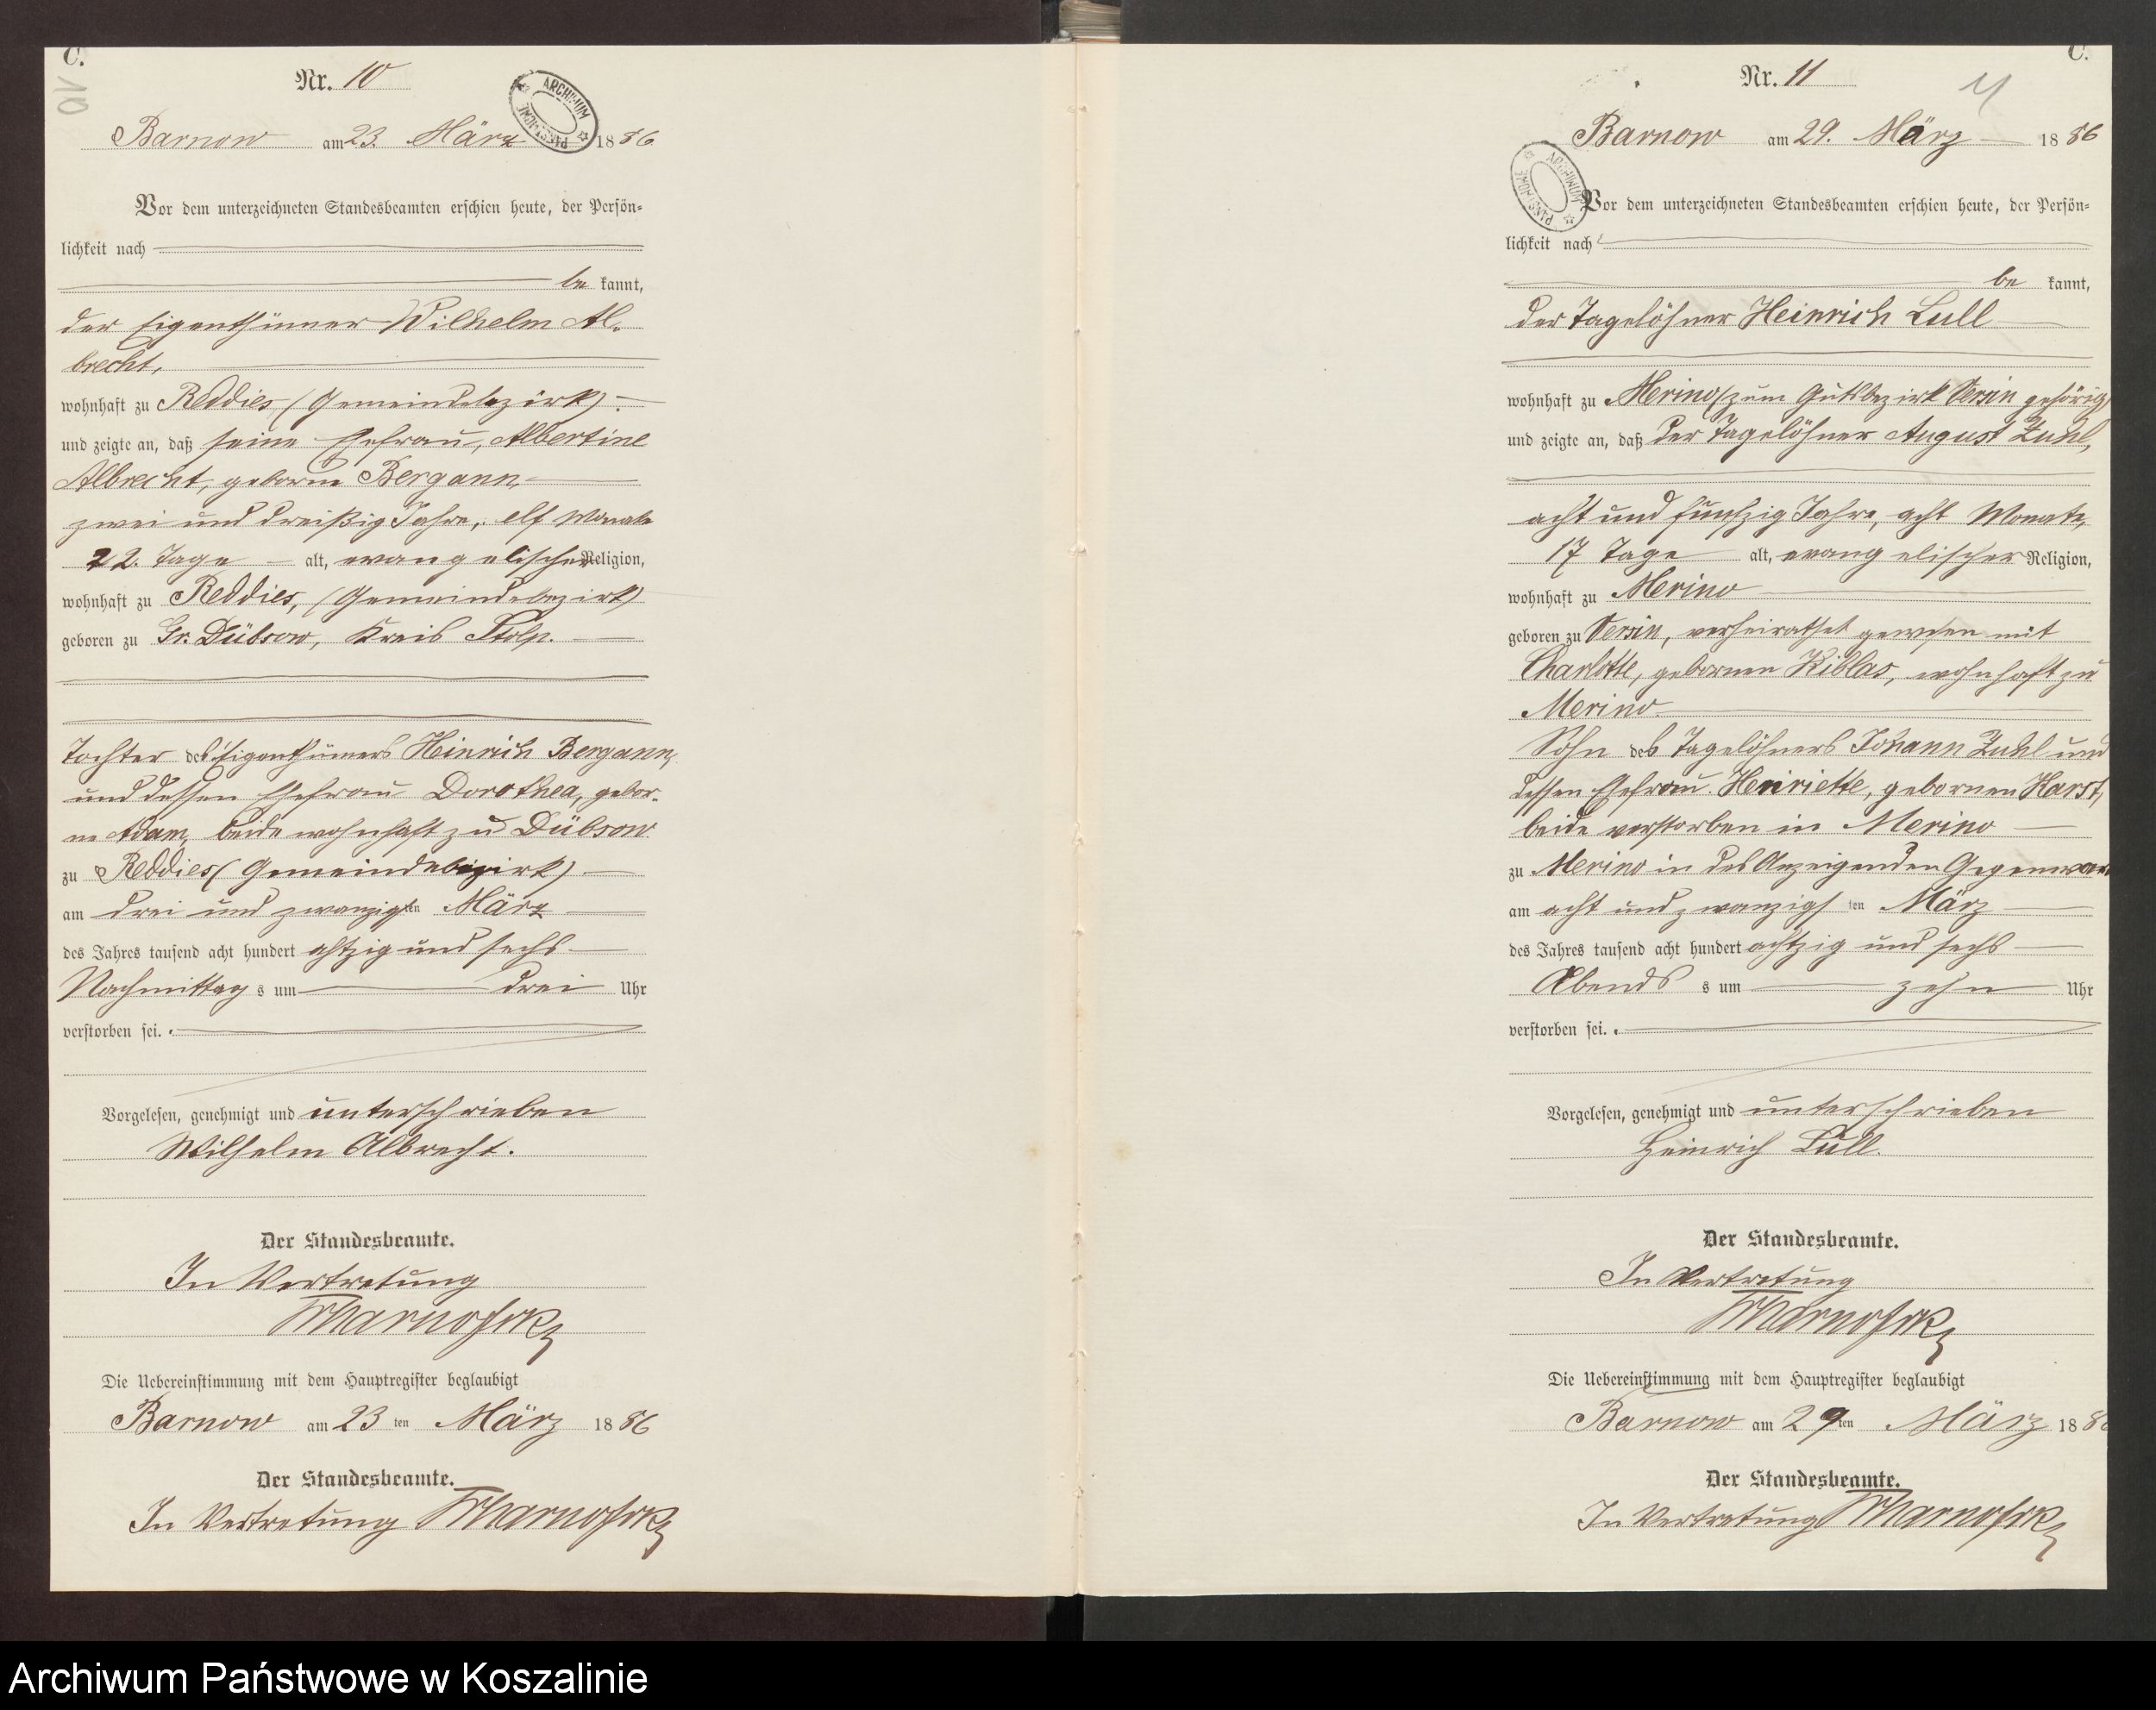 C.
10
Nr. 10
ARCHIWUM PAŃSTWOWE
Barnow am 23. März 1886
Vor dem unterzeichneten Standesbeamten erschien heute, der Persön-
lichkeit nach
be kannt,
der Eigenthümer Wilhelm Al-
brecht,
wohnhaft zu Reddies (Gemeindebezirk).
und zeigte an, daß seine Ehefrau, Albertine
Albrecht, geborne Bergann,
zwei und dreißig Jahre, elf Monate
22. Tage alt, evangelischer Religion,
wohnhaft zu Reddies, (Gemeindebezirk)
geboren zu Gr. Dübsow, Kreis Stolp.
Tochter des Eigenthümers Heinrich Bergann,
und dessen Ehefrau Dorothea, gebor-
ne Adam, beide wohnhaft zu Dübsow
zu Reddies (Gemeindebezirk)
am drei und zwanzigsten März
des Jahres tausend acht hundert achtzig und sechs
Nachmittag s um drei Uhr
verstorben sei.
Vorgelesen, genehmigt und unterschrieben
Wilhelm Albrecht.
Der Standesbeamte.
In Vertretung
Die Uebereinstimmung mit dem Hauptregister beglaubigt
Barnow am 23 ten März 1886
Der Standesbeamte.
In Vertretung
C.
Nr. 11
11
Barnow am 29. März 1886
ARCHIWUM PAŃSTWOWE
Vor dem unterzeichneten Standesbeamten erschien heute, der Persön-
lichkeit nach
be kannt,
der Tagelöhner Heinrich Lull
wohnhaft zu Merino (zum Gutsbezirk Versin gehörig)
und zeigte an, daß der Tagelöhner August Zuhl,
acht und fünfzig Jahre, acht Monate,
17 Tage alt, evangelischer Religion,
wohnhaft zu Merino
geboren zu Versin, verheirathet gewesen mit
Charlotte, gebornen Kiblas, wohnhaft zu
Merino.
Sohn des Tagelöhners Johann Zuhl und
dessen Ehefrau Henriette, gebornen Harst,
beide verstorben in Merino
zu Merino in des Anzeigenden Gegenwart
am acht und zwanzigs ten März
des Jahres tausend acht hundert achtzig und sechs
Abends s um zehn Uhr
verstorben sei.
Vorgelesen, genehmigt und unterschrieben
Heinrich Lull.
Der Standesbeamte.
In Vertretung
Die Uebereinstimmung mit dem Hauptregister beglaubigt
Barnow am 29 ten März 1886
Der Standesbeamte.
In Vertretung
Archiwum Państwowe w Koszalinie